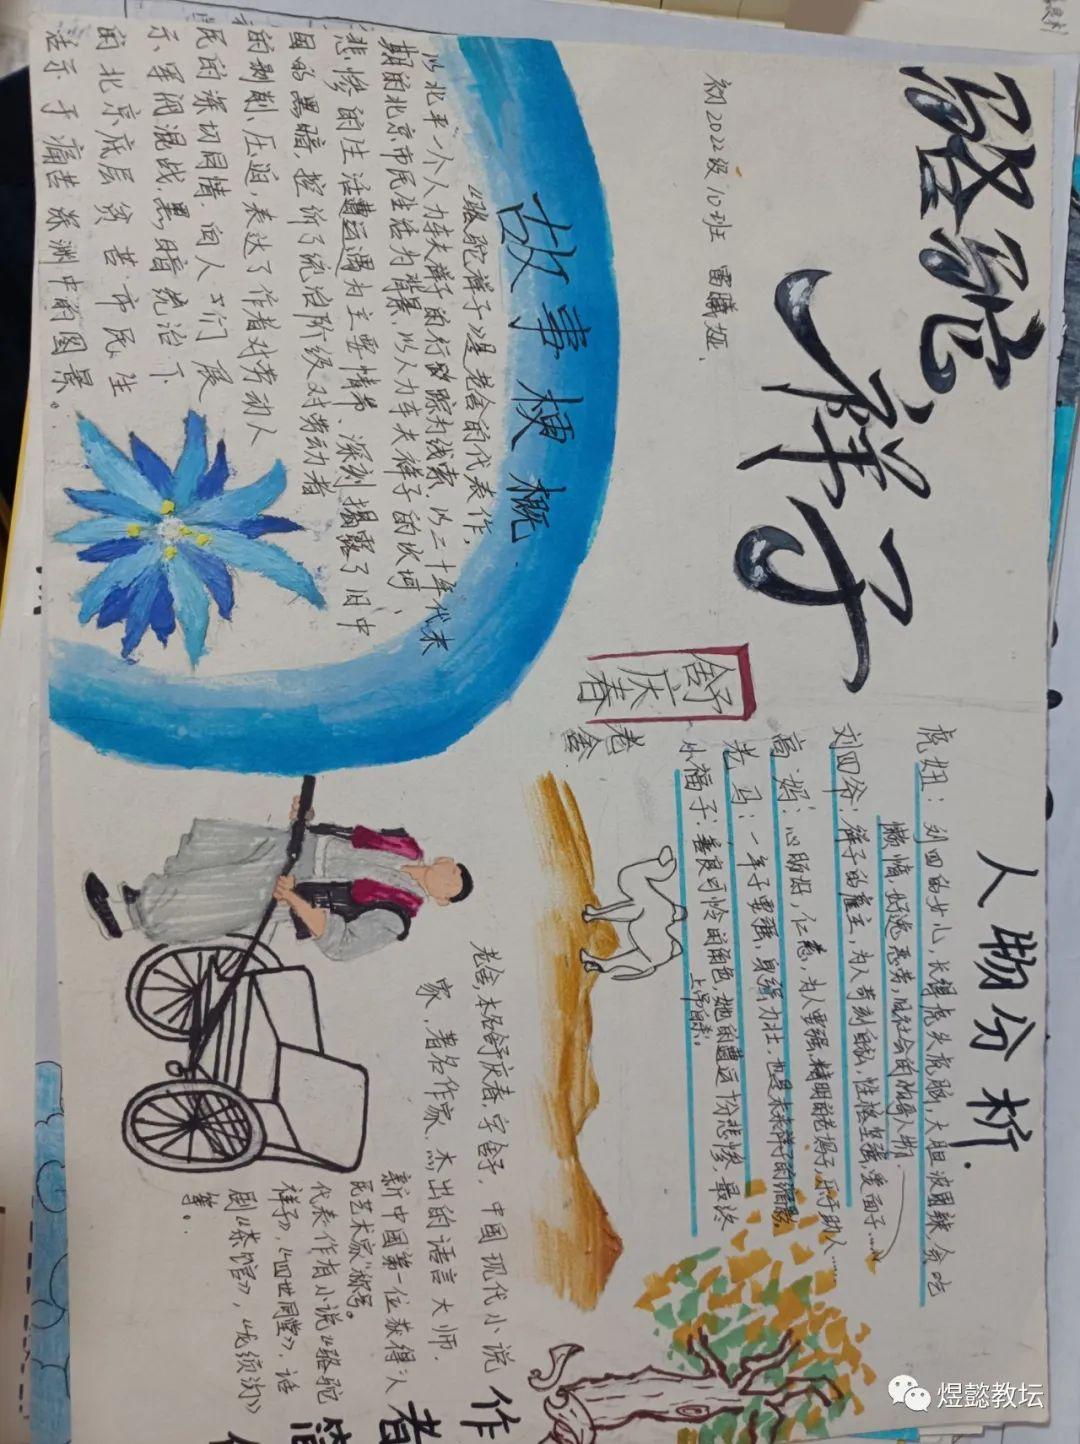 骆驼
祥子
初2022级10班 雷曦娅、
故事梗概
《骆驼祥子》是老舍的代表作,
以北平一个人力车夫祥子的行踪为线索、以二十年代末
期的北京市民生活为背景、以人力车夫祥子的坎坷、
悲惨的生活遭遇为主要情节、深刻揭露了旧中
国的黑暗,控诉了统治阶级对劳动者
的剥削、压迫,表达了作者对劳动人
民的深切同情,向人们展
示军阀混战,黑暗统治下
的北京底层贫苦市民生
活于痛苦深渊中的图景。
舒庆春
老舍
人物分析.
虎妞:刘四的女儿,长得虎头虎脑,大胆泼辣,好吃
懒惰,好逸恶劳,旧社会的人物.
刘四爷:祥子的雇主,为人苛刻自私,性格坚强,爱面子……
高妈:心肠好,仁慈,为人要强,精明的老妈子,乐于助人……
老马:一辈子要强,身强力壮,也是未来祥子的缩影,
小福子:善良可怜的角色,她的遭遇十分悲惨,最终
上吊自杀!
老舍,本名舒庆春,字舍予,中国现代小说
家,著名作家,杰出的语言大师.
新中国第一位获得“人
民艺术家”称号。
代表作有小说《骆驼
祥子》,《四世同堂》,话
剧《茶馆》,《龙须沟》
等。
作
者
简
煜懿教坛